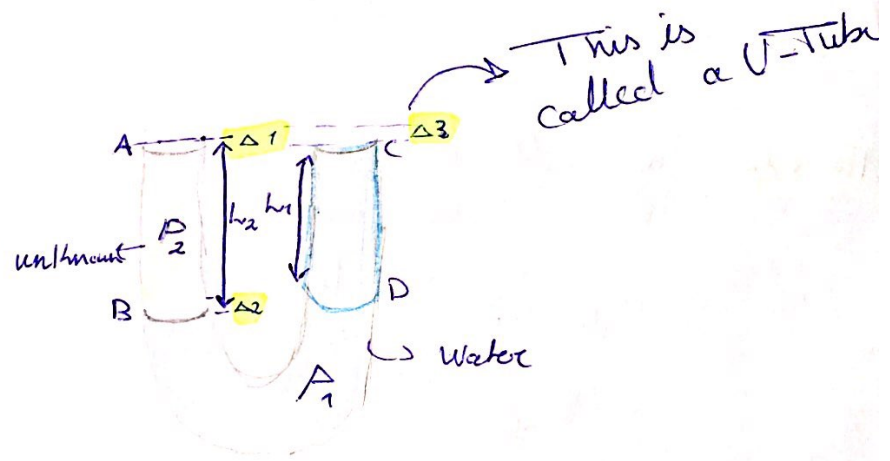 This is
called a U-Tube
A
Δ1
Δ3
C
h₂
h₁
P₂
B
Δ2
D
Water
P₁